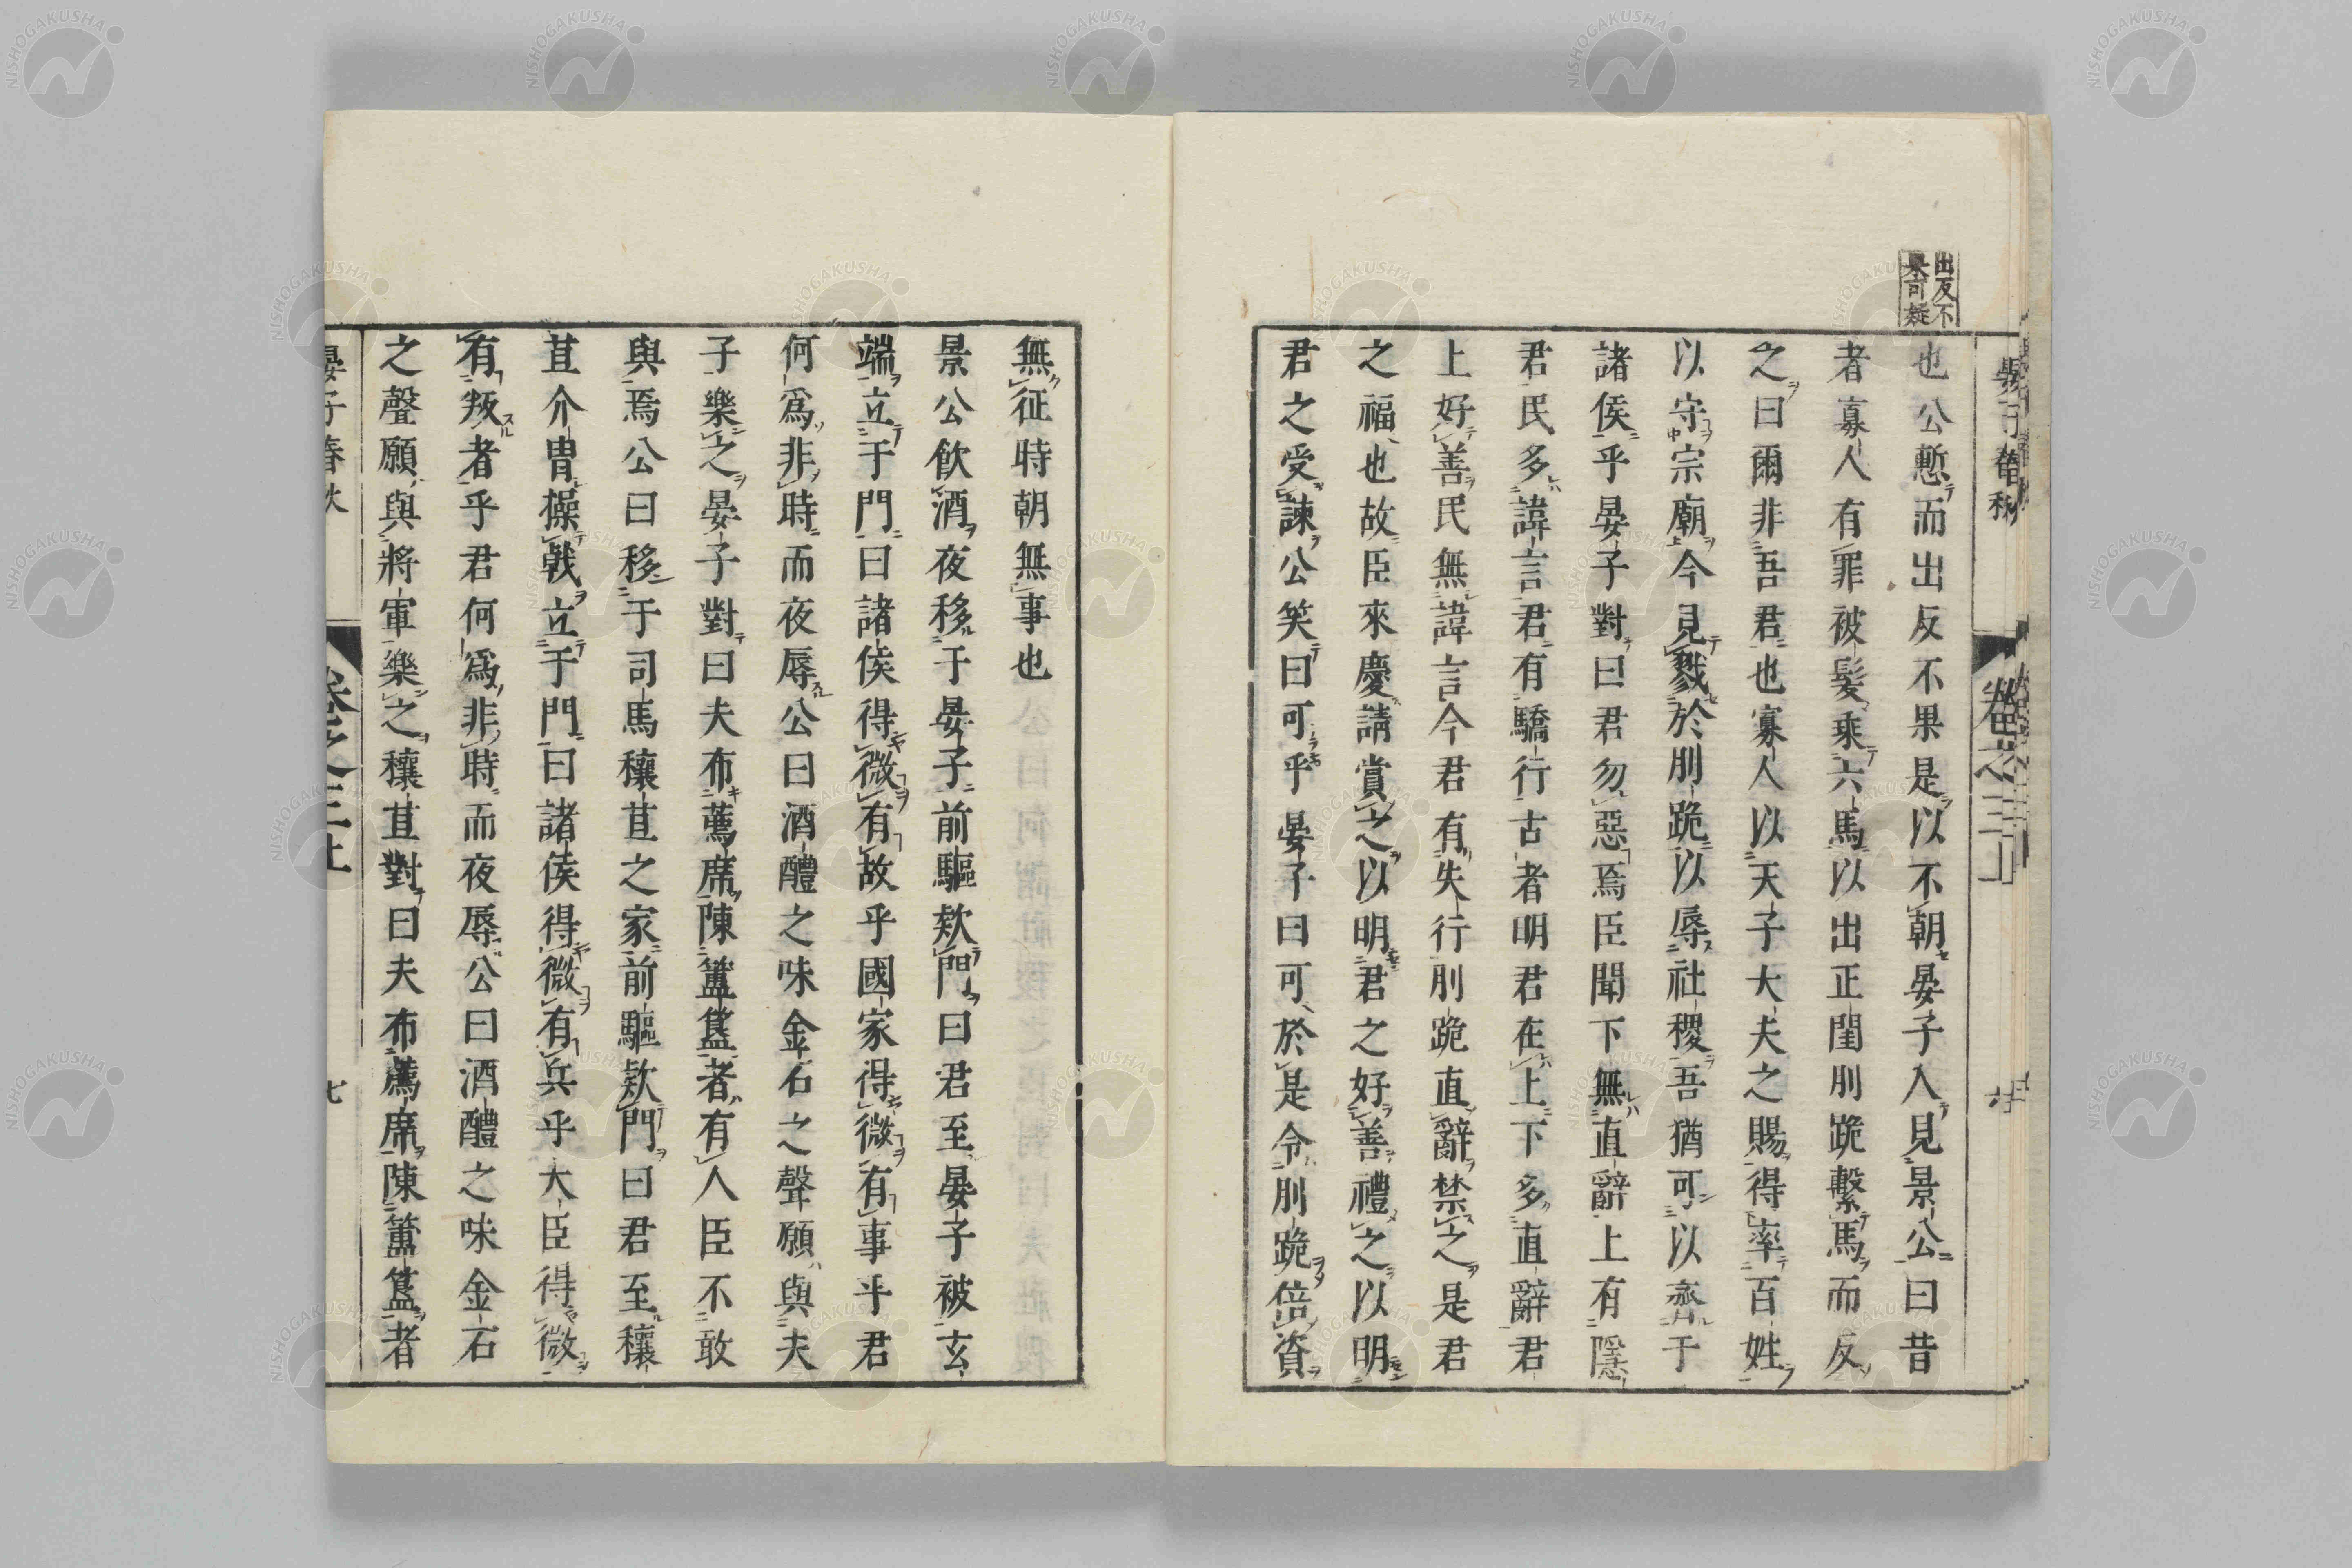 出反不
果可疑
晏子春秋
卷之三上
也公慙而出反不果是以不朝晏子入見景公曰昔
者寡人有罪被髮乘六馬以出正閨刖跪擊馬而反
之曰爾非吾君也寡人以天子大夫之賜得率百姓
以守宗廟今見戮於刖跪以辱社稷吾猶可以齊于
諸侯乎晏子對曰君勿惡焉臣聞下無直辭上有隱
君民多諱言君有驕行古者明君在上下多直辭君
上好善民無諱言今君有失行刖跪直辭禁之是君
之福也故臣來慶請賞之以明君之好善禮之以明
君之受諫公笑曰可乎晏子曰可於是令刖跪倍資
無征時朝無事也
景公飲酒夜移于晏子前驅欵門曰君至晏子被玄
端立于門曰諸侯得微有故乎國家得微有事乎君
何爲非時而夜辱公曰酒醴之味金石之聲願與夫
子樂之晏子對曰夫布薦席陳簠簋者有人臣不敢
與焉公曰移于司馬穰苴之家前驅欵門曰君至穰
苴介冑操戟立于門曰諸侯得微有兵乎大臣得微
有叛者乎君何爲非時而夜辱公曰酒醴之味金石
之聲願與將軍樂之穰苴對曰夫布薦席陳簠簋者
晏子春秋
卷之三上
七
NISHOGAKUSHA